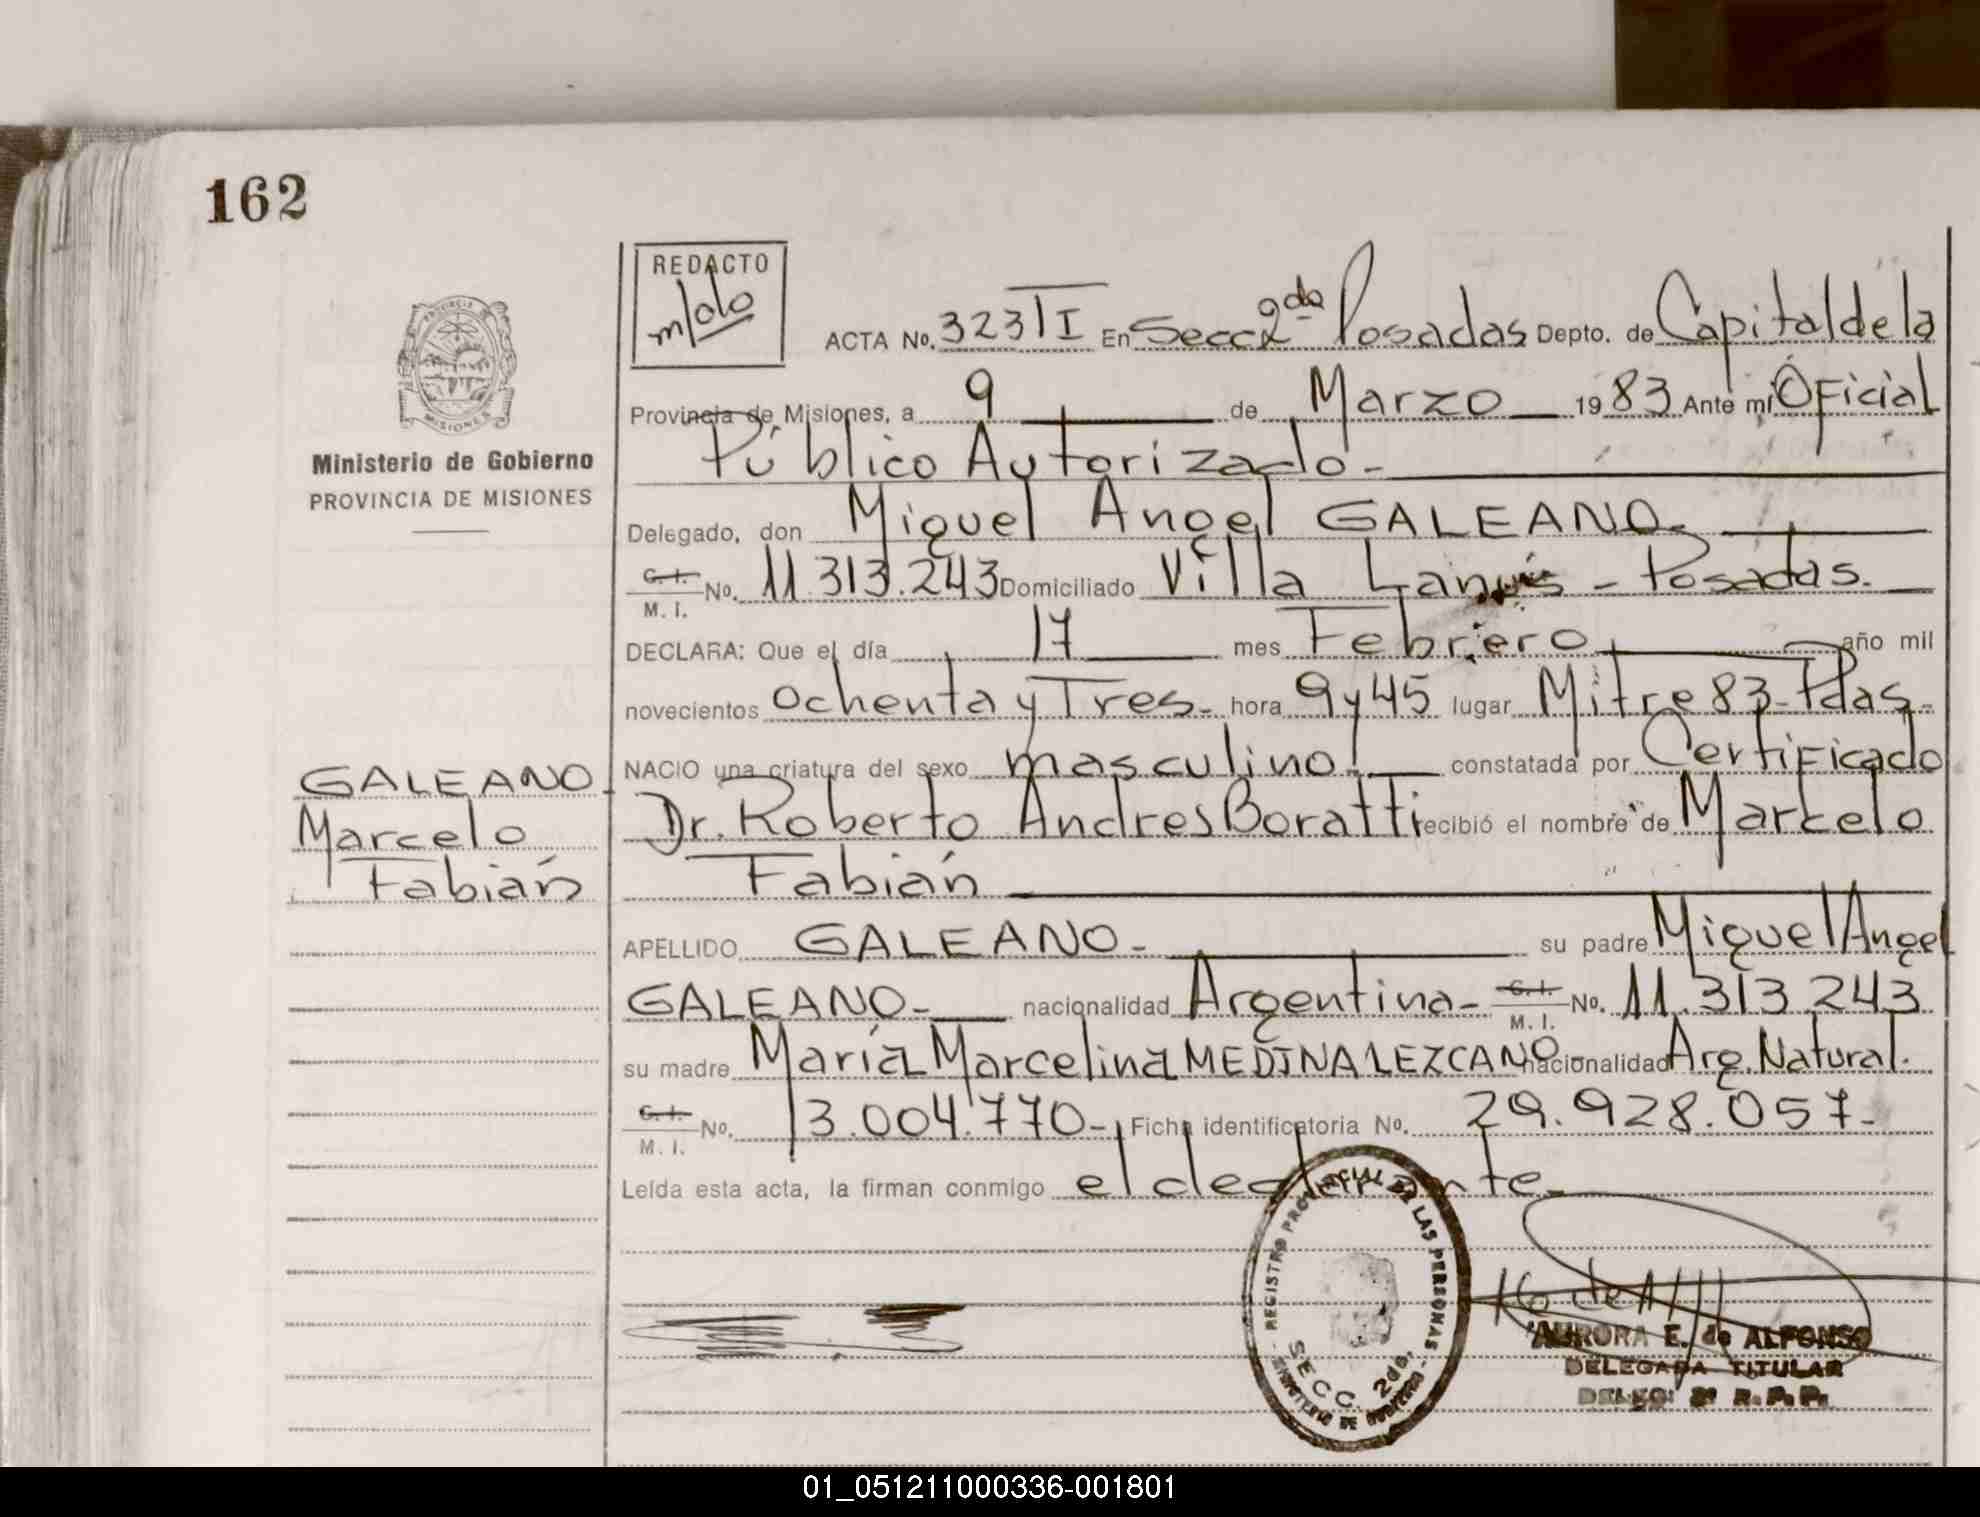 162
REDACTO
ACTA No. 323 I En Secc 2da Posadas Depto. de Capital de la
Provincia de Misiones, a 9 de Marzo 1983 Ante mí Oficial
Público Autorizado-
Ministerio de Gobierno
PROVINCIA DE MISIONES
Delegado, don Miguel Angel GALEANO
C. I. M. I. No. 11.313.243 Domiciliado Villa Lanús - Posadas.
DECLARA: Que el día 17 mes Febrero año mil
novecientos ochenta y Tres- hora 9 y 45 lugar Mitre 83-Pdas-
NACIO una criatura del sexo masculino constatada por Certificado
Dr. Roberto Andres Boratti recibió el nombre de Marcelo
Fabián
GALEANO
Marcelo
Fabián
APELLIDO GALEANO- su padre Miguel Angel
GALEANO- nacionalidad Argentina- C. I. M. I. No. 11.313.243
su madre María Marcelina MEDINA LEZCANO- nacionalidad Arg. Natural.
C. I. M. I. No. 13.004.770- Ficha identificatoria No. 29.928.057-
Leída esta acta, la firman conmigo el declarante-
REGISTRO PROVINCIAL DE LAS PERSONAS
SECC. 2da.
AURORA E. de ALFONSO
DELEGADA TITULAR
DELEG. 2ª R. P. P.
01_051211000336-001801